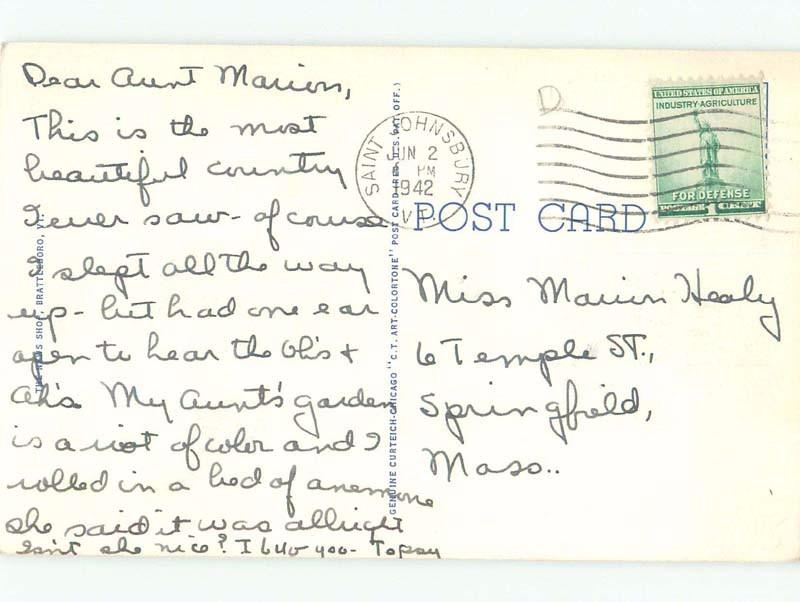 Dear Aunt Marion,
This is the most
beautiful country
I ever saw - of course
I slept all the way
up - but had one ear
open to hear the Oh's +
Ah's. My Aunt's garden
is a riot of color and I
rolled in a bed of anemone
she said it was allright
Isn't she nice? I luv you - Topsy
THE NEWS SHOP, BRATTLEBORO, VT.
GENUINE CURTEICH-CHICAGO "C.T. ART-COLORTONE" POST CARD (REG. U.S. PAT. OFF.)
SAINT JOHNSBURY
JUN 2
PM
1942
VT.
D
UNITED STATES OF AMERICA
INDUSTRY-AGRICULTURE
FOR DEFENSE
POSTAGE 1 CENTS
POST CARD
Miss Marion Healy
6 Temple ST.,
Springfield,
Mass..